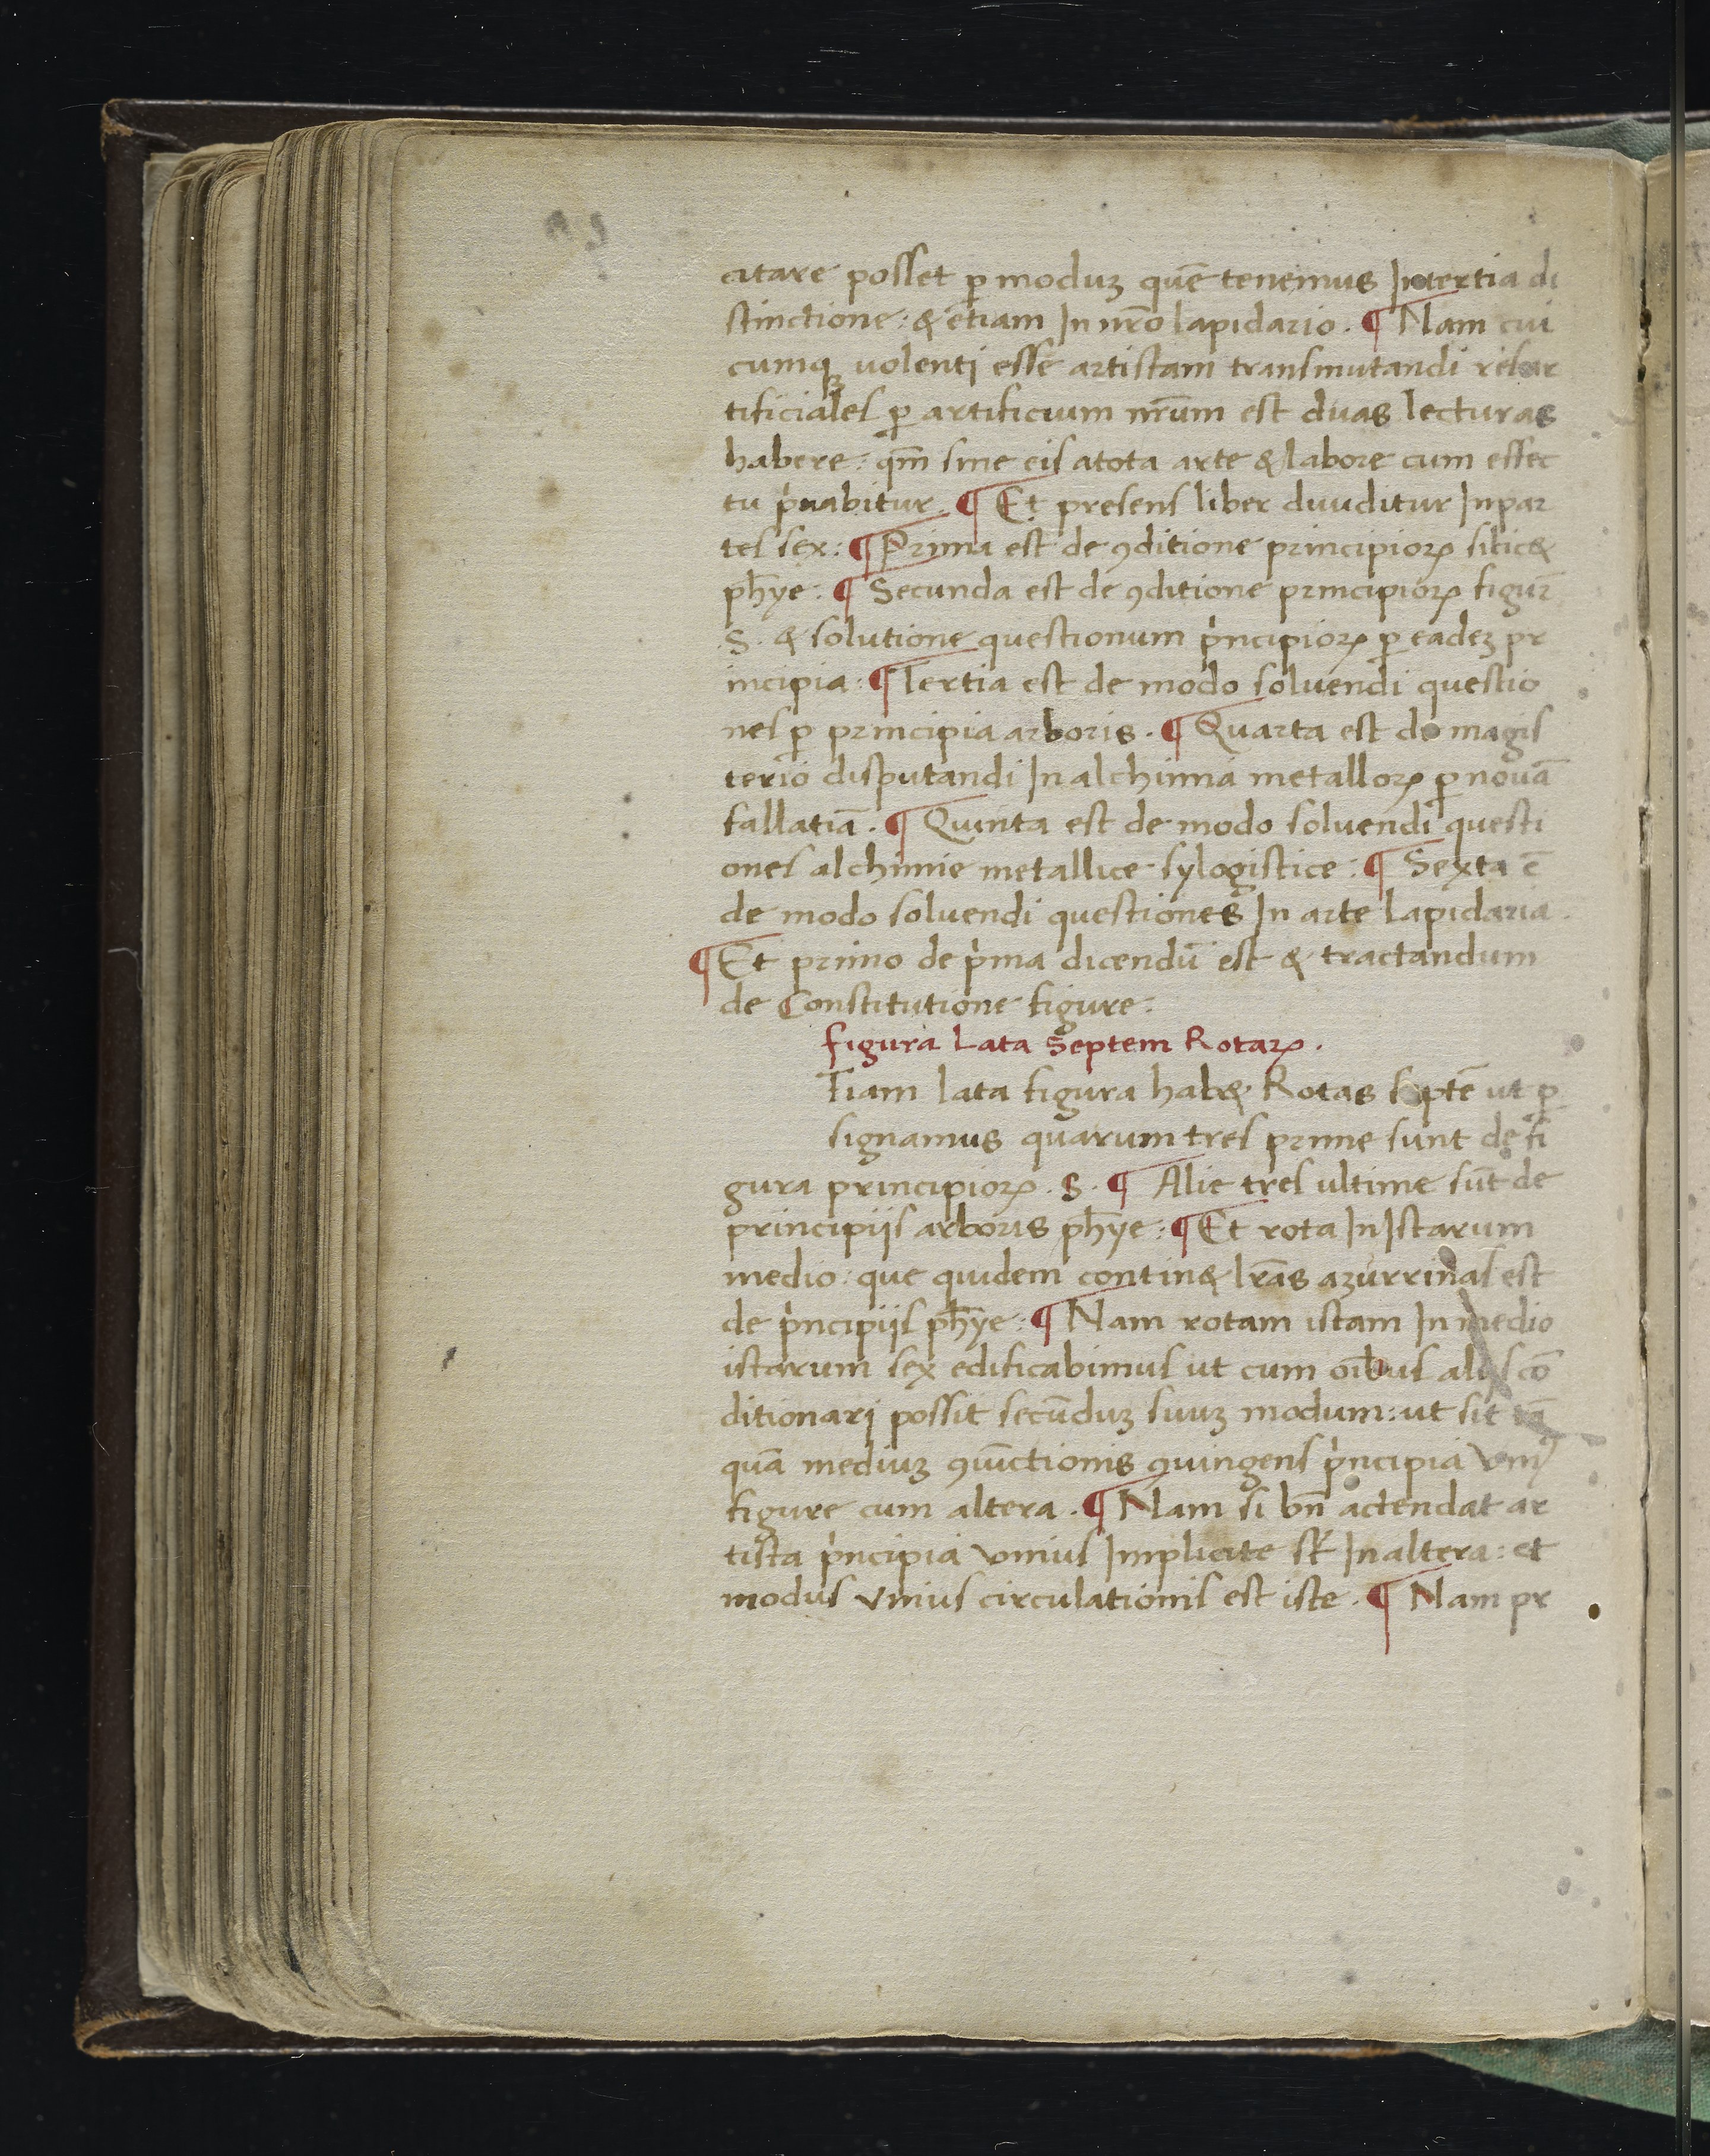 citare posset ꝑ moduꝫ quē tenemus In tertia di
stinctione: & etiam In nr̄o lapidario. ¶ Nam cui
cumqꝫ uolenti esse artistam transmutandi res ar
tificiales ꝑ artificium nr̄um est duas lecturas
habere: qm̄ sine eis a tota arte & labore cum effec
tu pͥuabitur. ¶ Et presens liber diuiditur In par
tes sex: ¶ Prima est de ꝯditione principioꝝ
ph̄ye: ¶ Secunda est de ꝯditione principioꝝ figur̄
.S. & solutione questionum pͥncipioꝝ ꝑ eadeꝫ pr
incipia: ¶ Tertia est de modo soluendi questio
nes ꝑ principia arboris. ¶ Quarta est de magis
terio disputandi In alchimia metalloꝝ ꝑ nouā
fallatiā. ¶ Quinta est de modo soluendi questi
ones alchimie metallice sylogistice: ¶ Sexta ē
de modo soluendi questiones In arte Lapidaria.
¶ Et primo de pͥma dicendū est & tractandum
de Constitutione figure:
figura Lata Septem Rotaꝝ.
Tiam lata figura hab& Rotas septē ut ꝑ
signamus quarum tres prime sunt de fi
gura principioꝝ .S. ¶ Alie tres ultime sūt de
principijs arboris ph̄ye: ¶ Et rota In Istarum
medio: que quidem contin& lr̄as azurrinas est
de pͥncipijs ph̄ye: ¶ Nam rotam istam In medio
istarum sex edificabimus ut cum oībus alijs cō
ditionarj possit secūduꝫ suuꝫ modum: ut sit tā
quā mediuꝫ ꝯiūctionis ꝯiungens pͥncipia Vniꝰ
figure cum altera. ¶ Nam si bn̄ actendat ar
tista pͥncipia vnius Implicite st̄ In altera: et
modus vnius circulationis est iste. ¶ Nam pr